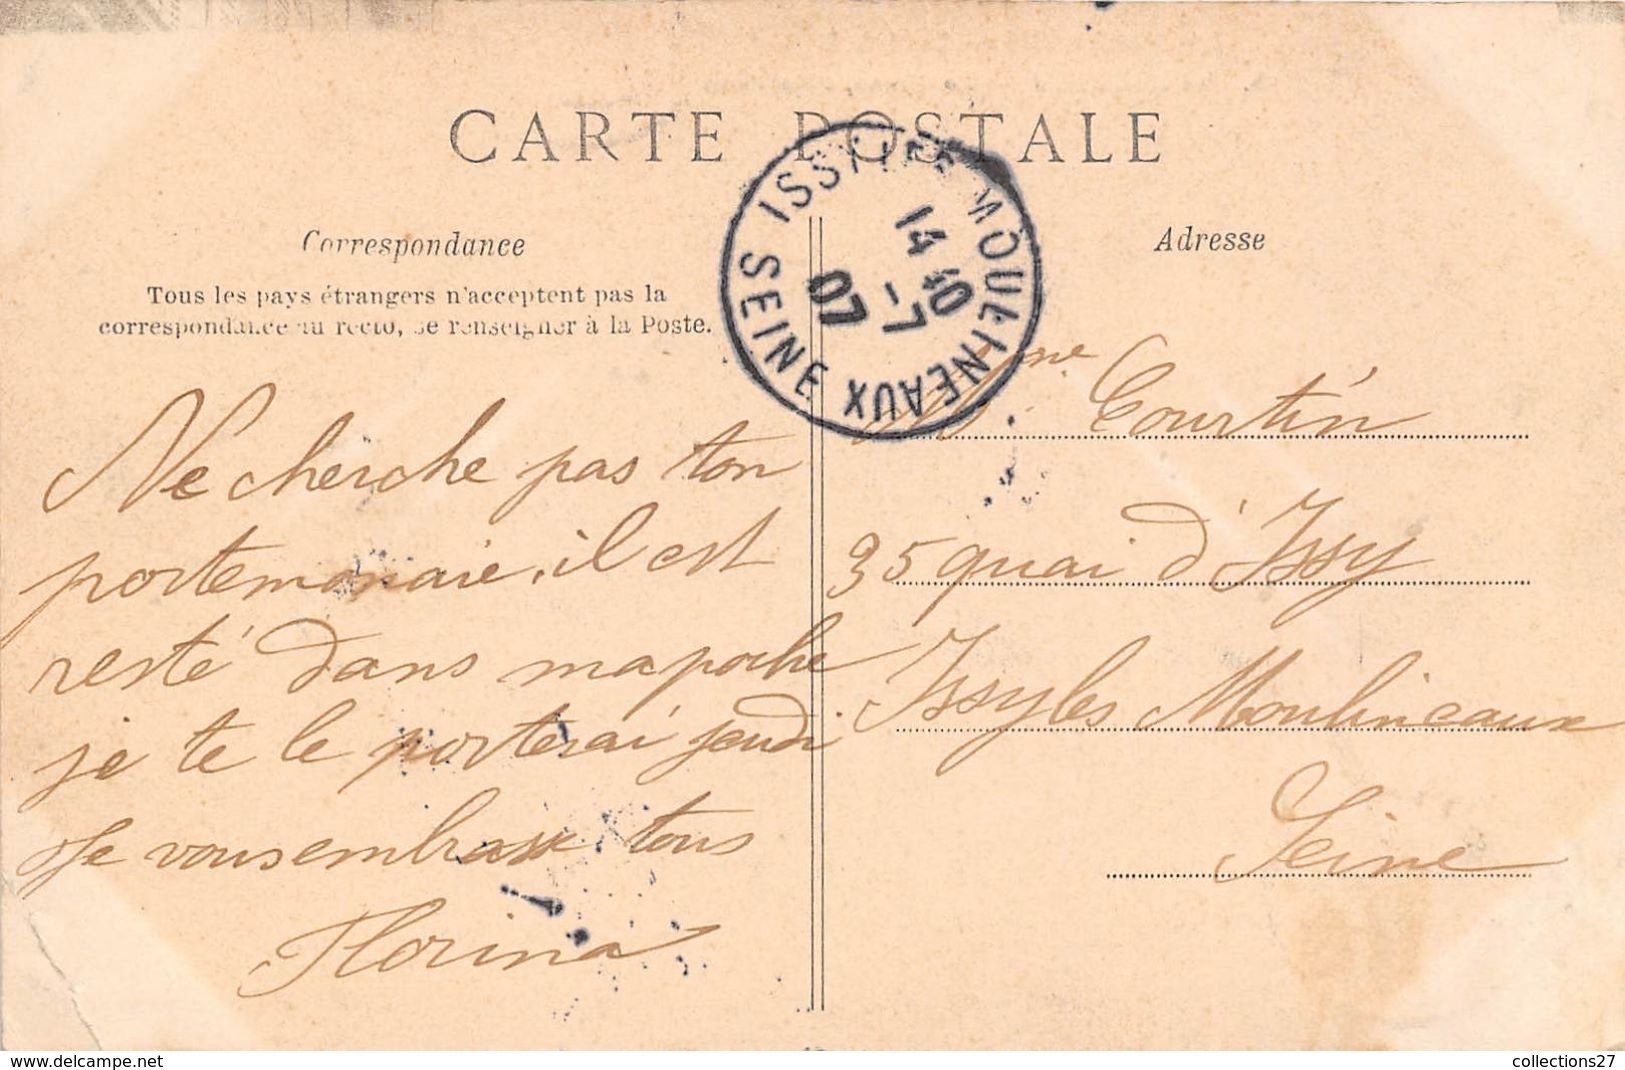 CARTE POSTALE
Correspondance
Tous les pays étrangers n'acceptent pas la
correspondance au recto, se renseigner à la Poste.
Ne cherche pas ton
portemonaie, il est
resté dans ma poche
je te le porterai jeudi
Je vous embrasse tous
Florina
ISSY LES MOULINEAUX
SEINE
14 40
-7
07
Adresse
Mme Courtin
35 quai d'Issy
Issy les Moulineaux
Seine
www.delcampe.net
collections27